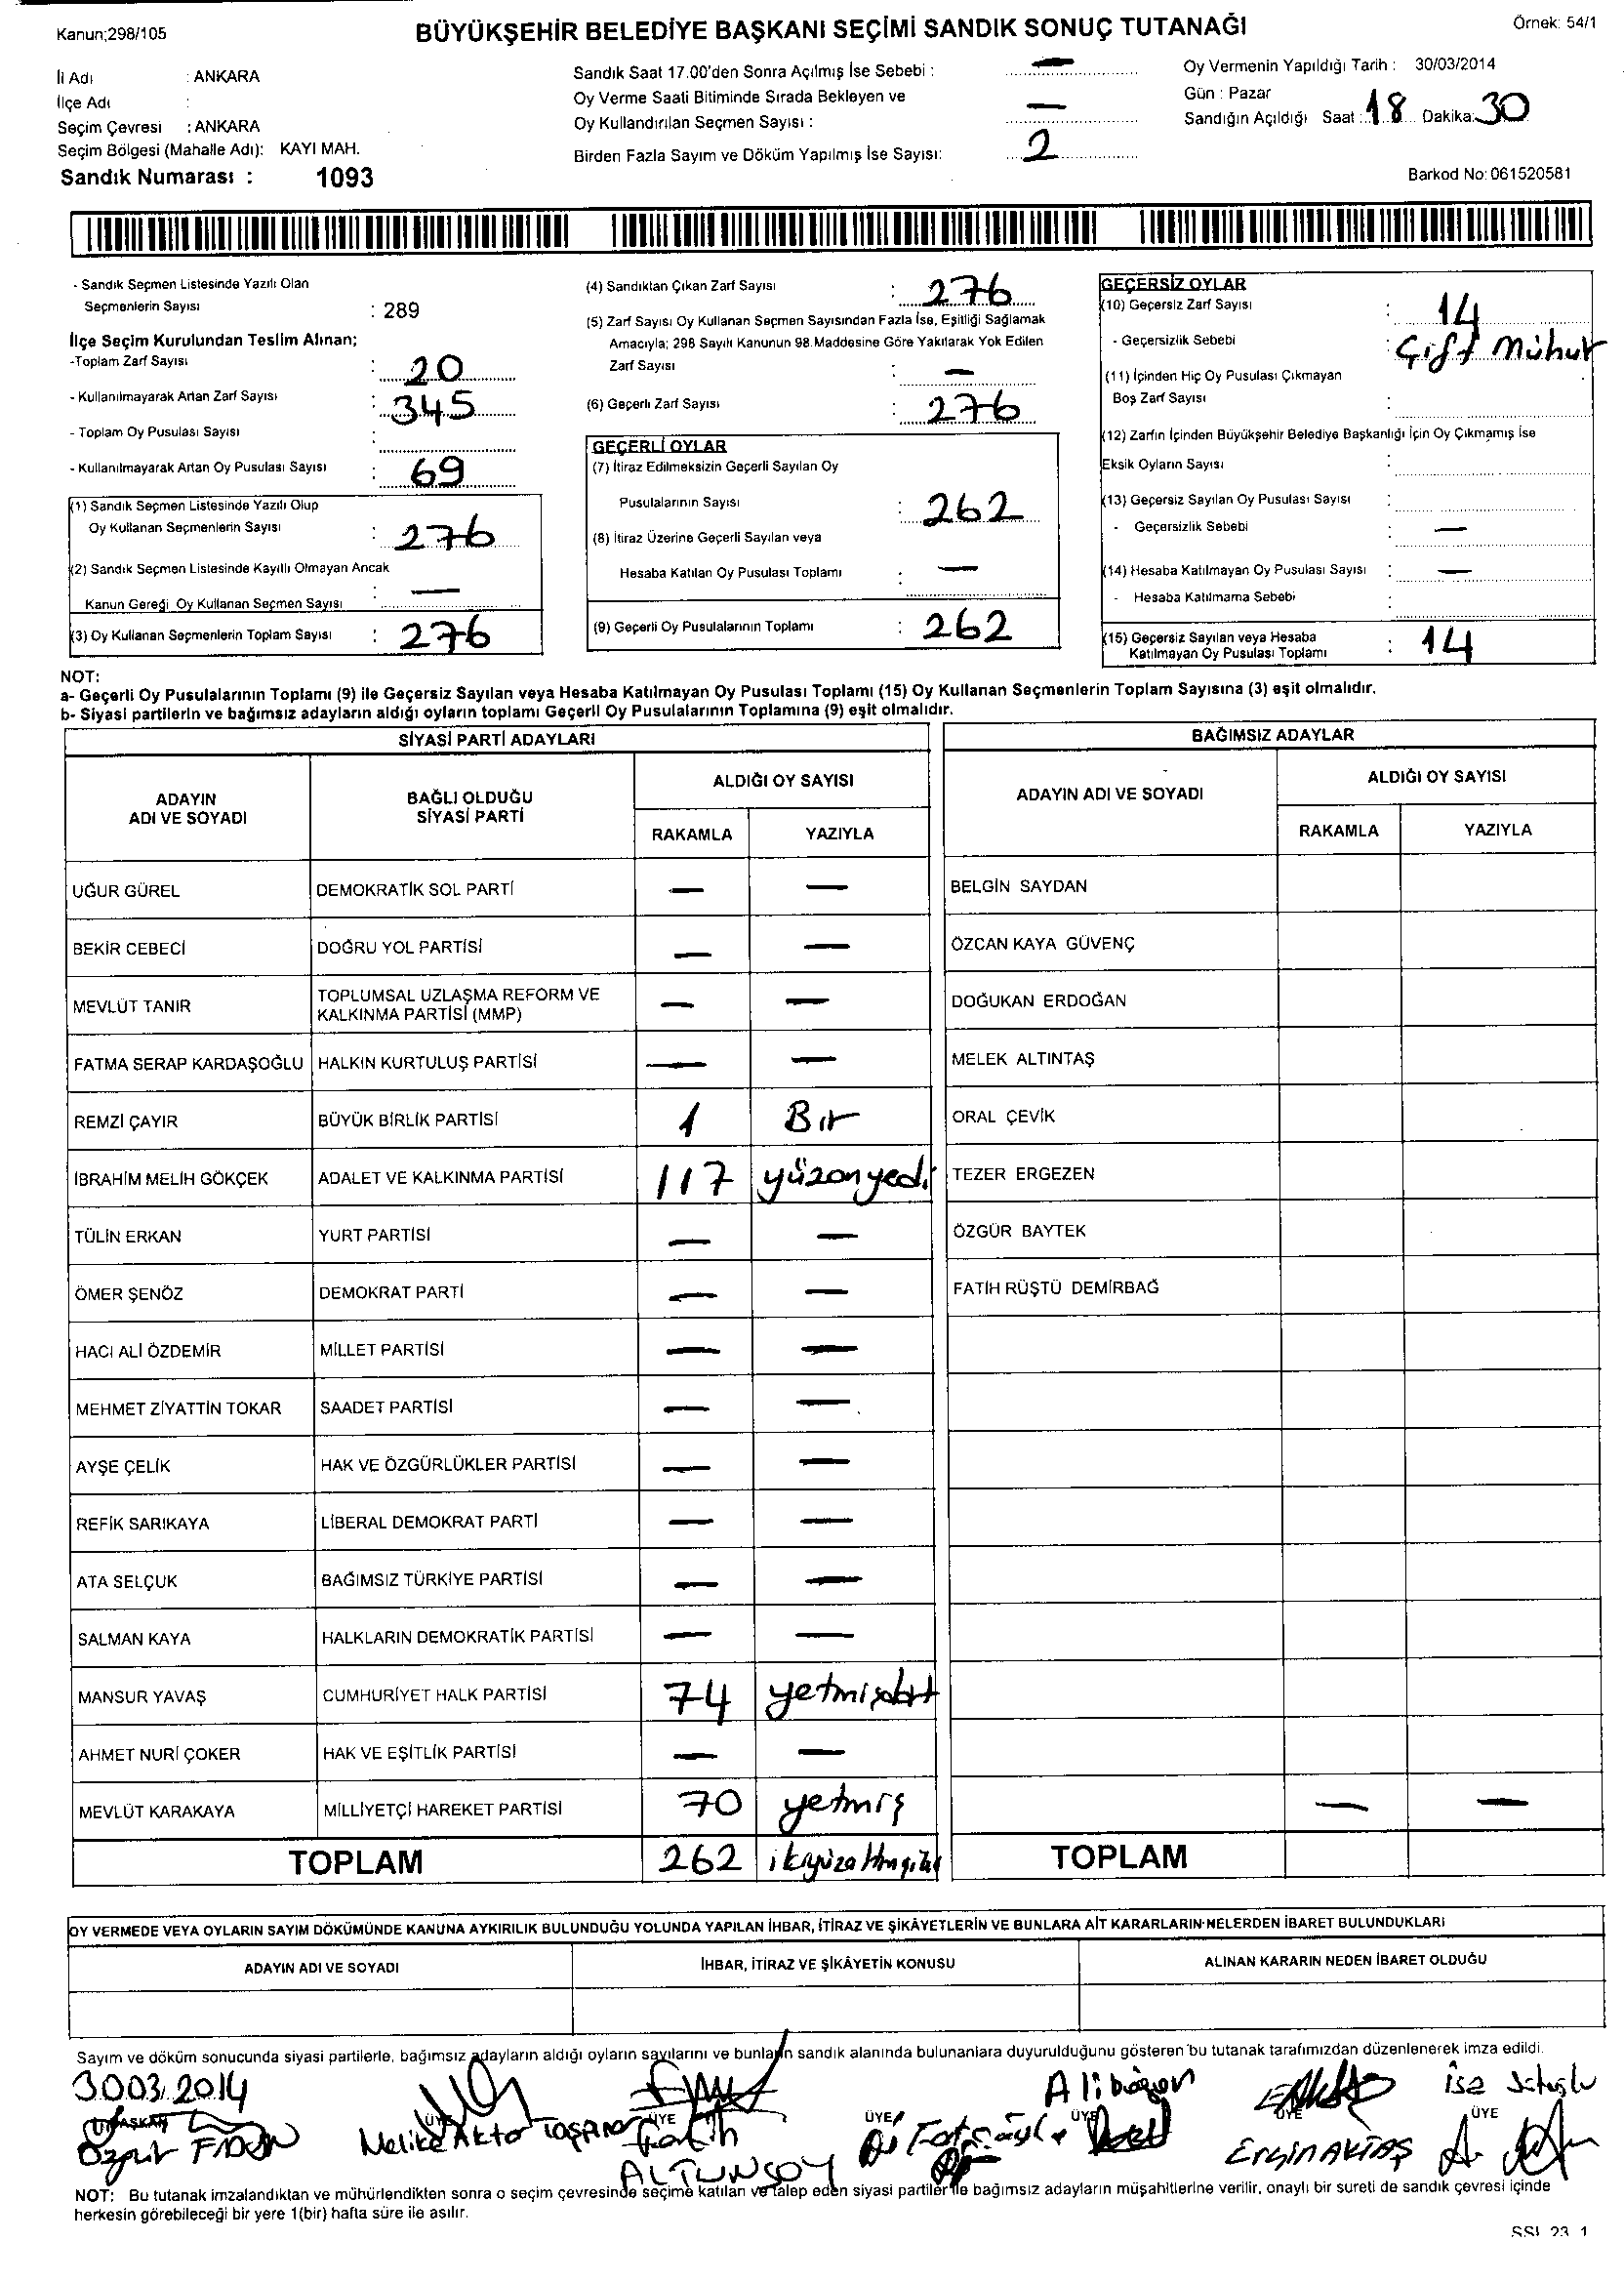 Kanun;298/105
BÜYÜKŞEHİR BELEDİYE BAŞKANI SEÇİMİ SANDIK SONUÇ TUTANAĞI
Örnek: 54/1
İli Adı : ANKARA
İlçe Adı :
Seçim Çevresi : ANKARA
Seçim Bölgesi (Mahalle Adı): KAYI MAH.
Sandık Numarası : 1093
Sandık Saat 17.00'den Sonra Açılmış İse Sebebi : —
Oy Verme Saati Bitiminde Sırada Bekleyen ve
Oy Kullandırılan Seçmen Sayısı : —
Birden Fazla Sayım ve Döküm Yapılmış İse Sayısı: 2
Oy Vermenin Yapıldığı Tarih : 30/03/2014
Gün : Pazar
Sandığın Açıldığı Saat : 18 Dakika: 30
Barkod No: 061520581
- Sandık Seçmen Listesinde Yazılı Olan
Seçmenlerin Sayısı : 289
İlçe Seçim Kurulundan Teslim Alınan;
-Toplam Zarf Sayısı : 20
- Kullanılmayarak Artan Zarf Sayısı : 345
- Toplam Oy Pusulası Sayısı :
- Kullanılmayarak Artan Oy Pusulası Sayısı : 69
(1) Sandık Seçmen Listesinde Yazılı Olup
Oy Kullanan Seçmenlerin Sayısı : 276
(2) Sandık Seçmen Listesinde Kayıtlı Olmayan Ancak
Kanun Gereği Oy Kullanan Seçmen Sayısı : —
(3) Oy Kullanan Seçmenlerin Toplam Sayısı : 276
(4) Sandıktan Çıkan Zarf Sayısı : 276
(5) Zarf Sayısı Oy Kullanan Seçmen Sayısından Fazla İse, Eşitliği Sağlamak
Amacıyla; 298 Sayılı Kanunun 98.Maddesine Göre Yakılarak Yok Edilen
Zarf Sayısı : —
(6) Geçerli Zarf Sayısı : 276
GEÇERLİ OYLAR
(7) İtiraz Edilmeksizin Geçerli Sayılan Oy
Pusulalarının Sayısı : 262
(8) İtiraz Üzerine Geçerli Sayılan veya
Hesaba Katılan Oy Pusulası Toplamı : —
(9) Geçerli Oy Pusulalarının Toplamı : 262
GEÇERSİZ OYLAR
(10) Geçersiz Zarf Sayısı : 14
- Geçersizlik Sebebi : Çift Mühür
(11) İçinden Hiç Oy Pusulası Çıkmayan
Boş Zarf Sayısı :
(12) Zarfın İçinden Büyükşehir Belediye Başkanlığı İçin Oy Çıkmamış İse
Eksik Oyların Sayısı :
(13) Geçersiz Sayılan Oy Pusulası Sayısı :
- Geçersizlik Sebebi : —
(14) Hesaba Katılmayan Oy Pusulası Sayısı : —
- Hesaba Katılmama Sebebi :
(15) Geçersiz Sayılan veya Hesaba
Katılmayan Oy Pusulası Toplamı : 14
NOT:
a- Geçerli Oy Pusulalarının Toplamı (9) ile Geçersiz Sayılan veya Hesaba Katılmayan Oy Pusulası Toplamı (15) Oy Kullanan Seçmenlerin Toplam Sayısına (3) eşit olmalıdır.
b- Siyasi partilerin ve bağımsız adayların aldığı oyların toplamı Geçerli Oy Pusulalarının Toplamına (9) eşit olmalıdır.
SİYASİ PARTİ ADAYLARI
ADAYIN ADI VE SOYADI BAĞLI OLDUĞU SİYASİ PARTİ ALDIĞI OY SAYISI
RAKAMLA YAZIYLA
UĞUR GÜREL DEMOKRATİK SOL PARTİ — —
BEKİR CEBECİ DOĞRU YOL PARTİSİ — —
MEVLÜT TANIR TOPLUMSAL UZLAŞMA REFORM VE KALKINMA PARTİSİ (MMP) — —
FATMA SERAP KARDAŞOĞLU HALKIN KURTULUŞ PARTİSİ — —
REMZİ ÇAYIR BÜYÜK BİRLİK PARTİSİ 1 Bir
İBRAHİM MELİH GÖKÇEK ADALET VE KALKINMA PARTİSİ 117 yüzonyedi
TÜLİN ERKAN YURT PARTİSİ — —
ÖMER ŞENÖZ DEMOKRAT PARTİ — —
HACI ALİ ÖZDEMİR MİLLET PARTİSİ — —
MEHMET ZİYATTİN TOKAR SAADET PARTİSİ — —
AYŞE ÇELİK HAK VE ÖZGÜRLÜKLER PARTİSİ — —
REFİK SARIKAYA LİBERAL DEMOKRAT PARTİ — —
ATA SELÇUK BAĞIMSIZ TÜRKİYE PARTİSİ — —
SALMAN KAYA HALKLARIN DEMOKRATİK PARTİSİ — —
MANSUR YAVAŞ CUMHURİYET HALK PARTİSİ 74 yetmişdört
AHMET NURİ ÇOKER HAK VE EŞİTLİK PARTİSİ — —
MEVLÜT KARAKAYA MİLLİYETÇİ HAREKET PARTİSİ 70 yetmiş
TOPLAM 262
BAĞIMSIZ ADAYLAR
ADAYIN ADI VE SOYADI ALDIĞI OY SAYISI
RAKAMLA YAZIYLA
BELGİN SAYDAN
ÖZCAN KAYA GÜVENÇ
DOĞUKAN ERDOĞAN
MELEK ALTINTAŞ
ORAL ÇEVİK
TEZER ERGEZEN
ÖZGÜR BAYTEK
FATİH RÜŞTÜ DEMİRBAĞ
— —
TOPLAM
OY VERMEDE VEYA OYLARIN SAYIM DÖKÜMÜNDE KANUNA AYKIRILIK BULUNDUĞU YOLUNDA YAPILAN İHBAR, İTİRAZ VE ŞİKÂYETLERİN VE BUNLARA AİT KARARLARIN NELERDEN İBARET BULUNDUKLARI
ADAYIN ADI VE SOYADI İHBAR, İTİRAZ VE ŞİKÂYETİN KONUSU ALINAN KARARIN NEDEN İBARET OLDUĞU
Sayım ve döküm sonucunda siyasi partilerle, bağımsız adayların aldığı oyların sayılarını ve bunların sandık alanında bulunanlara duyurulduğunu gösteren bu tutanak tarafımızdan düzenlenerek imza edildi.
30.03.2014
BAŞKAN ÜYE ÜYE ÜYE ÜYE ÜYE ÜYE
Özgür Melike Fatih ALTUNSOY Ergin AKTAŞ İsa
NOT: Bu tutanak imzalandıktan ve mühürlendikten sonra o seçim çevresinde seçime katılan ve talep eden siyasi partiler ile bağımsız adayların müşahitlerine verilir, onaylı bir sureti de sandık çevresi içinde
herkesin görebileceği bir yere 1(bir) hafta süre ile asılır.